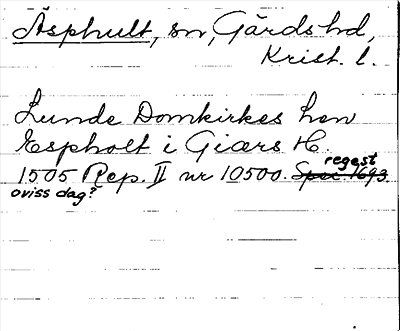 Äsphult, sn, Gärds hd,
Krist. l.
Lunde Domkirkes hen
Espholt i Giers H.
regest
1505 Rep. II nr 10500. Spec. 1693.
oviss dag?